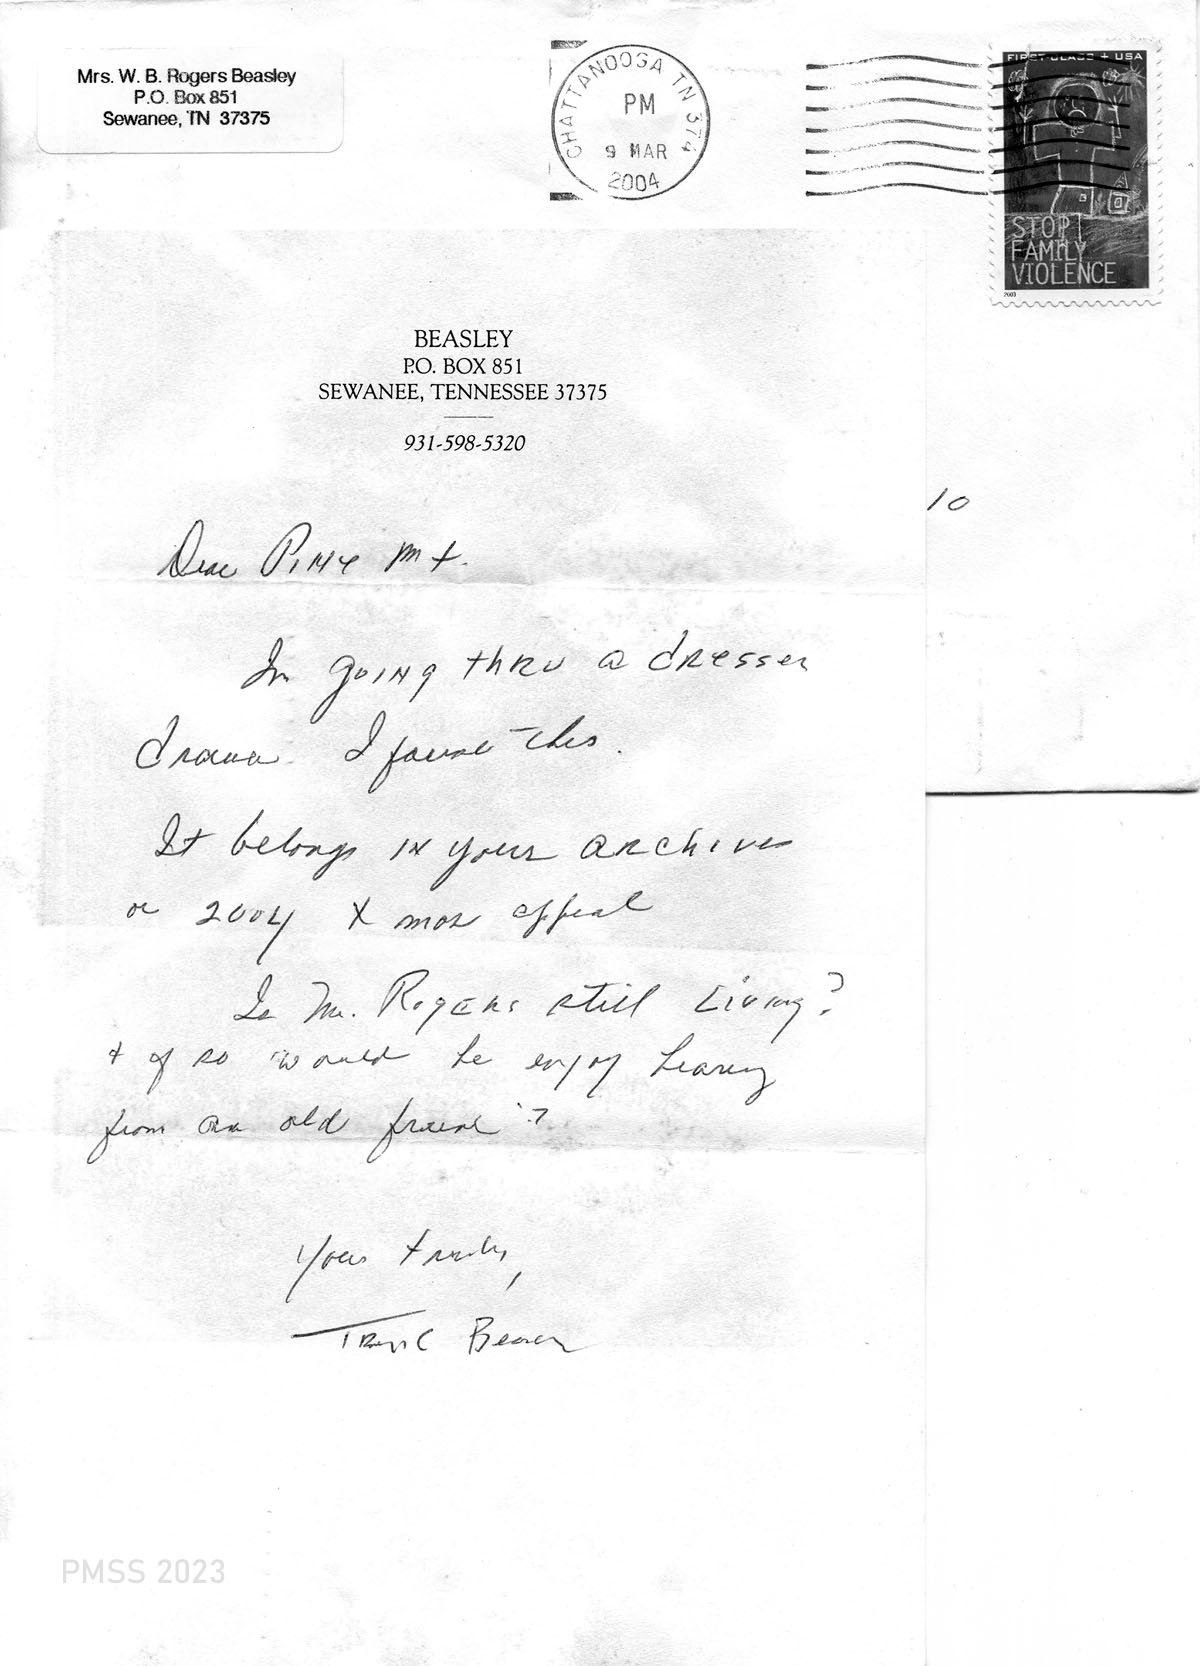 Mrs. W. B. Rogers Beasley
P.O. Box 851
Sewanee, TN 37375
CHATTANOOGA TN 374
PM
9 MAR
2004
FIRST-CLASS + USA
STOP
FAMILY
VIOLENCE
2003
BEASLEY
P.O. BOX 851
SEWANEE, TENNESSEE 37375
931-598-5320
10
Dear Pine Mt.
In going thru a dresser
drawer I found this.
It belongs in your archives
or 2004 Xmas appeal
Is Mr. Rogers still living?
+ if so would he enjoy hearing
from an old friend?
Yours truly,
PMSS 2023